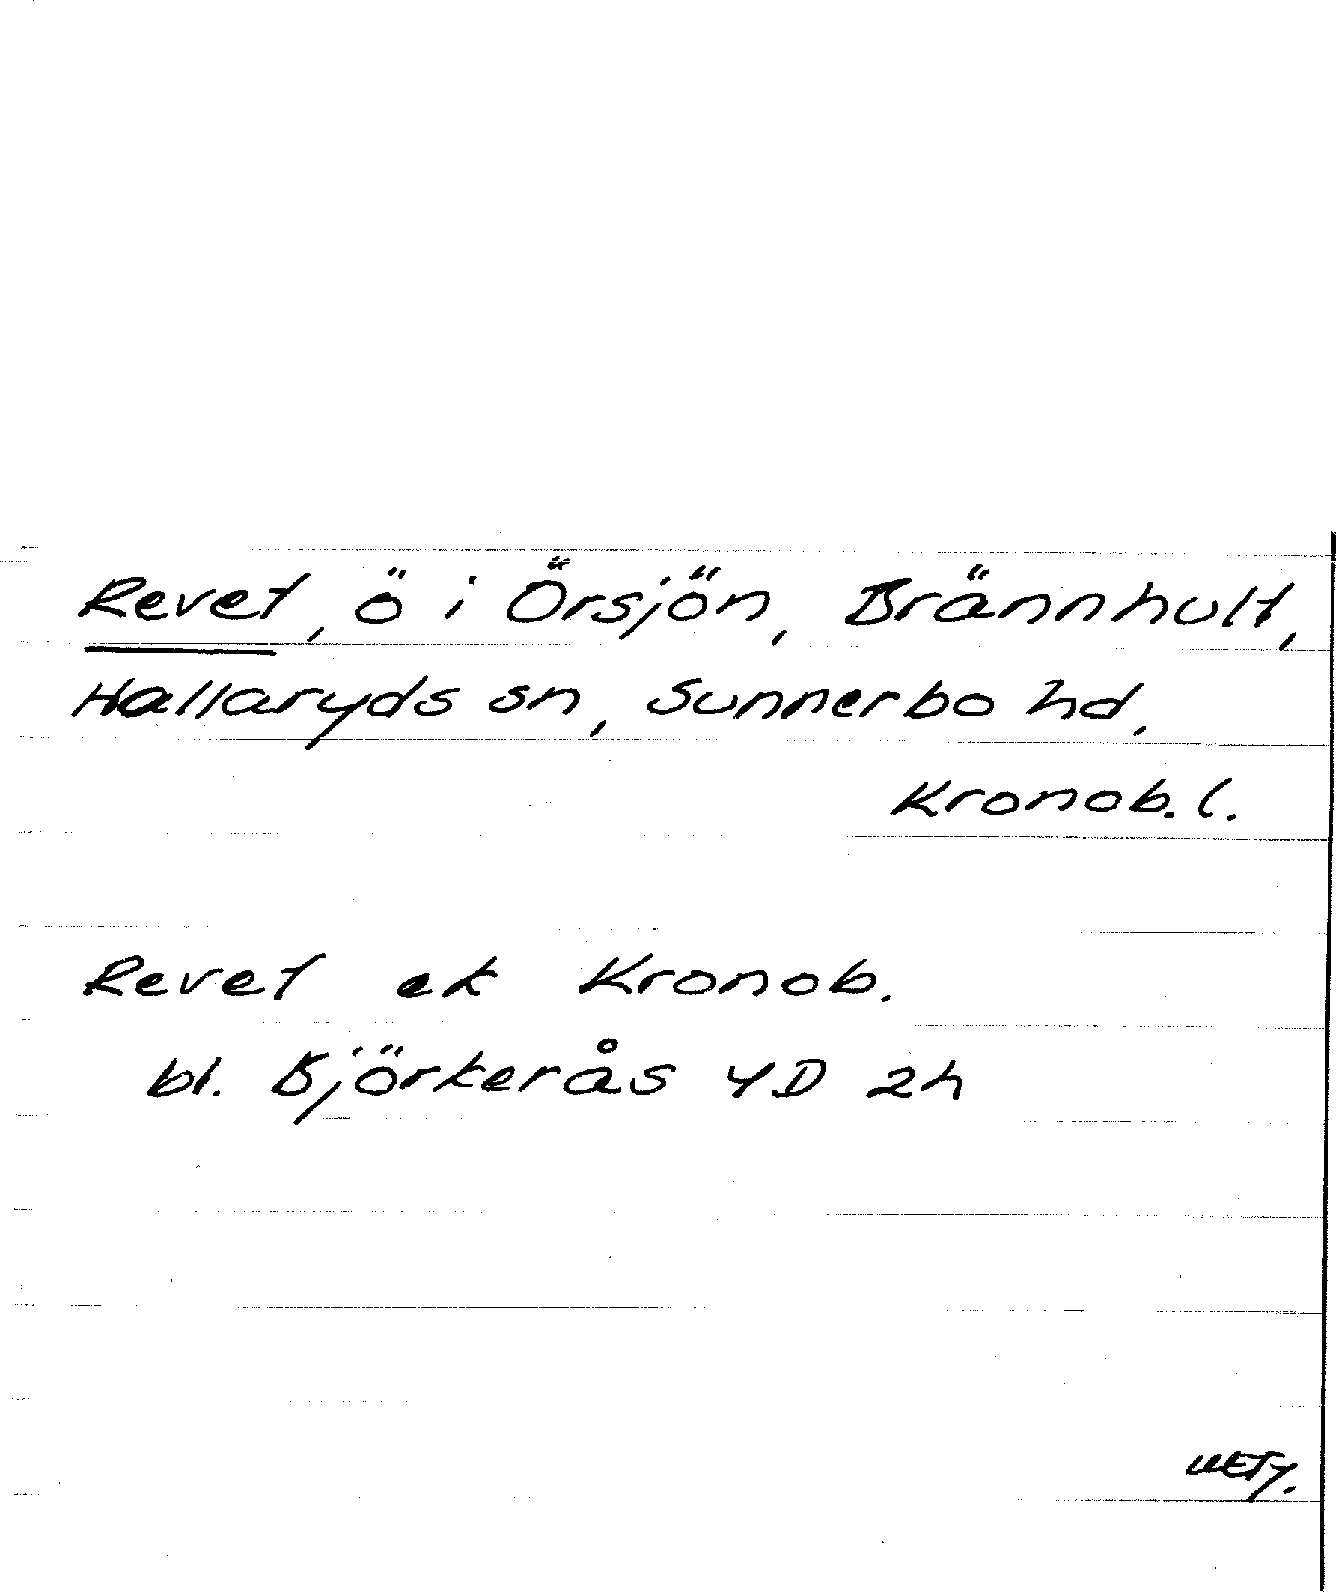 Revet, ö i Örsjön, Brännhult,
Hallaryds sn, Sunnerbo hd,
Kronob. l.
Revet ek Kronob.
bl. Björkerås 4D 2h